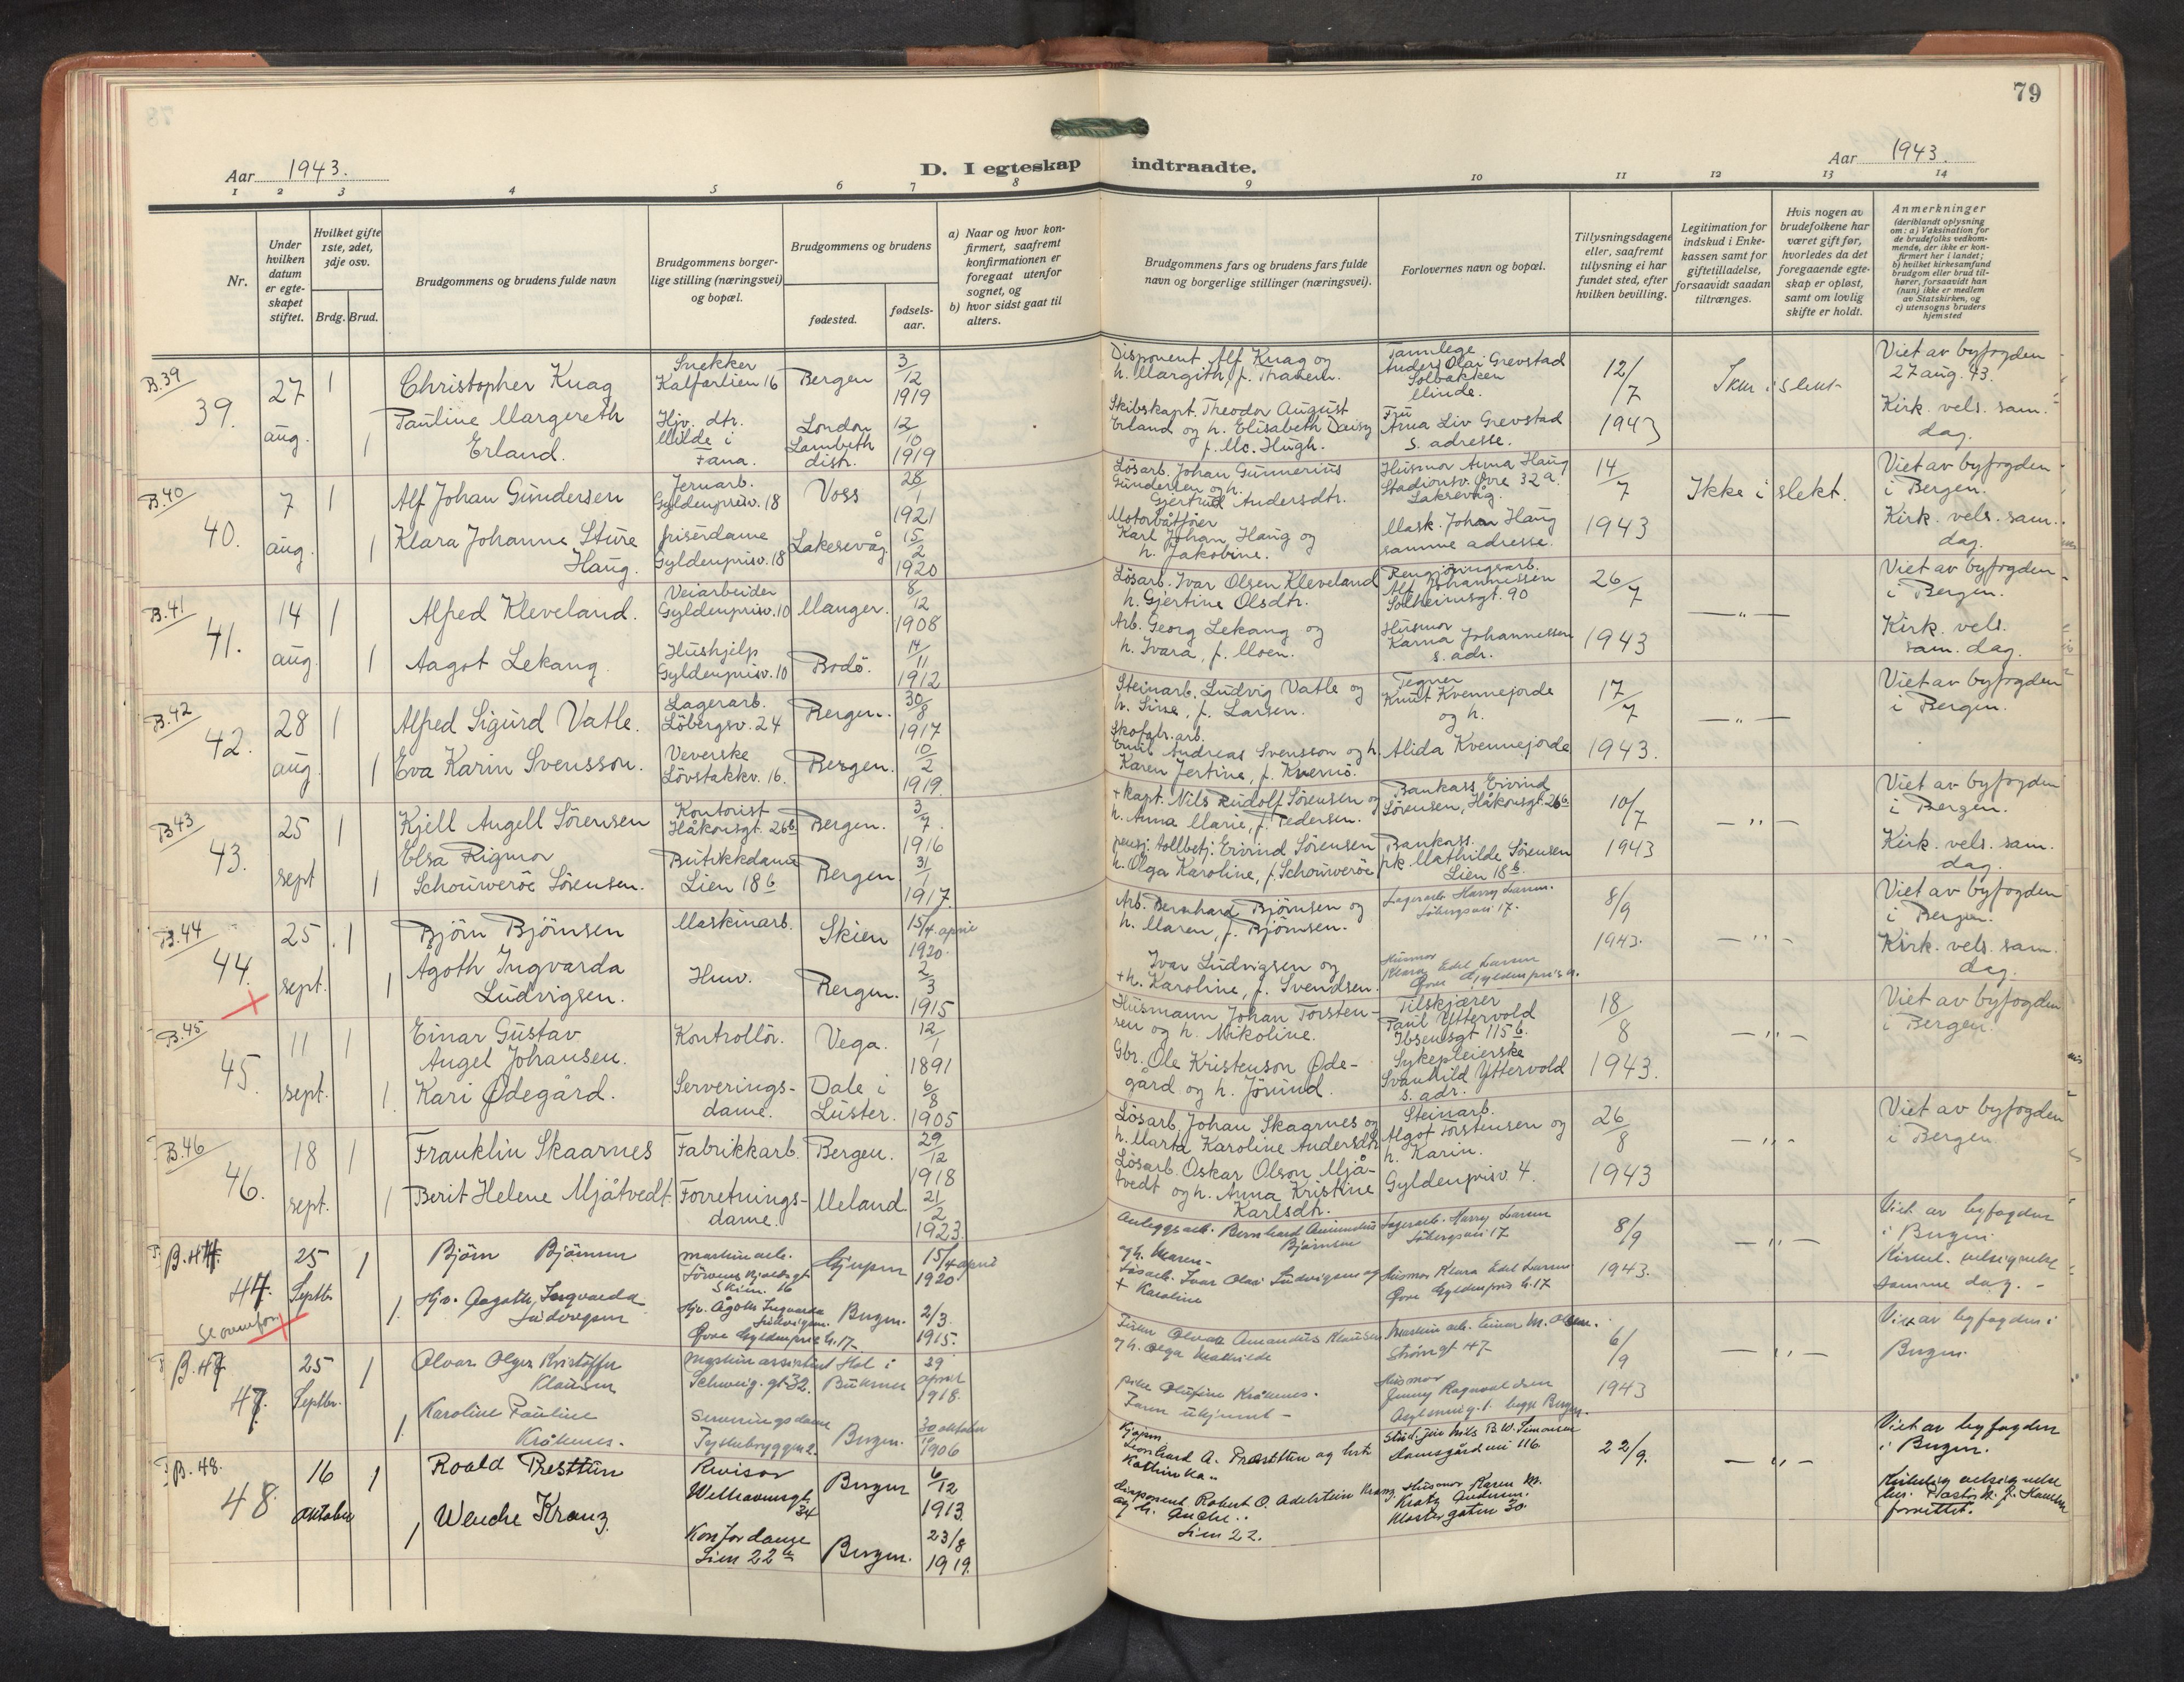 79
Aar 1943.
D. I egteskap indtraadte.
Aar 1943.
1 2 3 4 5 6 7 8 9 10 11 12 13 14
Nr.
Under hvilken datum er egteskapet stiftet.
Hvilket gifte 1ste, 2det, 3dje osv.
Brdg. Brud.
Brudgommens og brudens fulde navn
Brudgommens borgerlige stilling (næringsvei) og bopæl.
Brudgommens og brudens
fødested.
fødselsaar.
a) Naar og hvor konfirmert, saafremt konfirmationen er foregaat utenfor sognet, og
b) hvor sidst gaat til alters.
Brudgommens fars og brudens fars fulde navn og borgerlige stillinger (næringsvei).
Forlovernes navn og bopæl.
Tillysningsdagene eller, saafremt tillysning ei har fundet sted, efter hvilken bevilling.
Legitimation for indskud i Enkekassen samt for giftetilladelse, forsaavidt saadan tiltrænges.
Hvis nogen av brudefolkene har været gift før, hvorledes da det foregaaende egteskap er opløst, samt om lovlig skifte er holdt.
Anmerkninger (deriblandt oplysning om: a) Vaksination for de brudefolks vedkommende, der ikke er konfirmert her i landet; b) hvilket kirkesamfund brudgom eller brud tilhører, forsaavidt han (hun) ikke er medlem av Statskirken, og c) utensogns bruders hjemsted
B.39
39.
27 aug.
1
Christopher Knag
Snekker
Kalfarlien 16
Bergen
3/12 1919
Disponent Alf Knag og
h. Margith, f.
Tannlege
Anders Olai Grevstad
Solbakken
Minde.
12/7 1943
Viet av byfogden
27 aug. 43.
1
Pauline Margereth
Erland.
Hjv. dtr.
Milde i
Fana.
London
Lambeth
distr.
12/10 1919
Skibskapt. Theodor August
Erland og h. Elisabeth Daisy
f. Mc. Hugh.
Fru
Anna Liv Grevstad
s. adresse.
Kirk. vels. sam.
dag.
B.40
40.
7 aug.
1
Alf Johan Gundersen
Jernarb.
Gyldenprisv. 18
Voss
28/1 1921
Løsarb. Johan Gunnerius
Gundersen og h.
Gjertrud Andersdtr.
Husmor Anna Haug
Stadionsv. Øvre 32 a.
Laksevåg.
14/7 1943
Ikke i slekt.
Viet av byfogden
i Bergen.
1
Klara Johanne Sture
Haug.
frisérdame
Gyldenprisv. 18
Laksevåg
15/2 1920
Motorbåtfører
Karl Johan Haug og
h. Jakobine.
Mask. Johan Haug
samme adresse.
Kirk. vels. sam.
dag.
B.41
41.
14 aug.
1
Alfred Kleveland.
Veiarbeider
Gyldenprisv. 10
Manger.
8/12 1908
Løsarb. Ivar Olsen Kleveland
h. Gjertine Olsdtr.
Rengjøringsarb.
Alf Johannessen
Solheimsgt. 90
26/7 1943
— " —
Viet av byfogden
i Bergen.
1
Aagot Lekang.
Hushjelp
Gyldenprisv. 10
Bodø.
14/11 1912
Arb. Georg Lekang og
h. Ivara, f. Moen.
Husmor
Karna Johannessen
s. adr.
Kirk. vels.
sam. dag.
B.42
42.
28 aug.
1
Alfred Sigurd Vatle.
Lagerarb.
Løbergsv. 24
Bergen.
30/8 1917
Steinarb. Ludvig Vatle og
h. Sine, f. Larsen.
Tegner
Knut Kvennejorde
og h.
17/7 1943.
— " —
Viet av byfogden
i Bergen.
1
Eva Karin Svensson.
Veverske
Løvstakkv. 16.
Bergen.
10/2 1919.
Skofabr. arb.
Emil Andreas Svensson og h.
Karen Jertine, f.
Alida Kvennejorde
B.43
43.
25 sept
1
Kjell Angell Sørensen
Kontorist
Håkonsgt. 26b
Bergen.
3/7 1916
+ kapt. Nils Rudolf Sørensen og
h. Anna Marie, f. Pedersen.
Bankass. Eivind
Sørensen, Håkonsgt. 26b
10/7 1943
— " —
Viet av byfogden
i Bergen.
1
Elsa Rigmor
Schouwerøe Sørensen.
Butikkdame
Lien 18 b
Bergen
31/1 1917.
pensj. tollbetj. Eivind Sørensen
h. Olga Karoline, f. Schouwerøe
Bankass.
frk. Mathilde Sørensen
Lien 18 b.
Kirk. vels. sam.
dag.
B.44
44.
25 sept.
1
Bjørn Bjørnsen
Maskinarb.
Skien
15/4 april 1920.
Arb. Bernhard Bjørnsen og
h. Maren, f. Bjørnsen.
Lagerarb. Harry Larsen.
Løbergsvei 17.
8/9 1943.
— " —
Viet av byfogden
i Bergen.
1
Agoth Ingvarda
Ludvigsen.
Husv.
Bergen.
2/3 1915
Ivar Ludvigsen og
+ h. Karoline, f. Svendsen.
Husmor
Klara Edel Larsen
Øvre Gyldenpris
Kirk. vels. sam.
dag.
B.45
45.
11 sept.
1
Einar Gustav
Angel Johansen.
Kontrollør.
Vega.
12/1 1891
Husmann Johan Torstensen og h. Nikoline.
Tilskjærer
Paul Yttervold
Ibsensgt 115 b.
18/8 1943.
— " —
Viet av byfogden
i Bergen.
1.
Kari Ødegård.
Serveringsdame.
Dale i
Luster.
6/8 1905
Gbr. Ole Kristenson Ødegård og h. Jørund.
Sykepleierske
Svanhild Yttervold
s. adr.
B.46
46.
18 sept.
1
Franklin Skaarnes
Fabrikkarb.
Bergen.
29/12 1918
Løsarb. Johan Skagrnes og
h. Marta Karoline Andersdtr.
Steinarb.
Algot Torstensen og
h. Karin.
26/8 1943
— " —
Viet av byfogden
i Bergen
1
Berit Helene Mjåtvedt.
Forretningsdame.
Meland
21/2 1923.
Løsarb. Oskar Olson Mjåtvedt og h. Anna Kristine
Karlsdtr.
Gyldenprisv. 4.
B.44.
44.
25 Septbr.
1
Bjørn Bjørnsen
maskinarb.
Skien. 16
Gjerpen
15/4 april 1920
Anleggsarb. Bernhard Amundus
Bjørnsen
og h. Maren
Lagerarb. Harry Larsen
Løbergsvei 17
8/9 1943.
— " —
Viet av byfogden
i Bergen.
1.
Hjv. Aagoth Ingvarda
Ludvigsen
Hjv. Ågoth Ingvarda
Ludvigsen.
Øvre Gyldenpris h. 17.
Bergen.
2/3 1915.
Løsarb. Ivar Olai Ludvigsen og
+ Karoline
Husmor Klara Edel Larsen
Øvre Gyldenpris h. 17
Kirkel. velsignelse
samme dag. -
Se ovenfor
B.47
47.
25 Septbr.
1
Alvar Olger Kristoffer
Klausen
Maskinassistent
Schweig. gt 32.
Hol i
Buksnes
29 april 1918.
Fisker Olvar Amandus Klausen
og h. Olga Mathilde
Maskinarb. Einar M. Olsen.
Strømgt 47
6/9 1943
— " —
Viet av byfogden i
Bergen.
1.
Karoline Pauline
Kråkenes.
Serveringsdame
Tyskebryggen 2.
Bergen.
30 oktober 1906
pike Olufine Kråkenes.
Faren ukjennt —
Husmor
Jenny Ragnvaldsen
B.48.
48.
16 oktober
1
Roald Presttun
Revisor
Welhavensgt.
34
Bergen
6/12 1913.
Kjøpm
Leonhard A. Presttun og hustr.
Kathinka..
Stud. jur Nils B. W. Simonsen
Damsgårdvei 116
22/9.
— " —
Viet av byfogden
i Bergen.
1
Wenche Kranz
Kontordame
Lien 22 b
Bergen.
23/8 1919.
Disponent Robert O. Adelstein Kranz.
og h.
Lien 22.
Husmor Karen M.
Klostergaten 30.
Kirkelig velsignelse
forrettet.